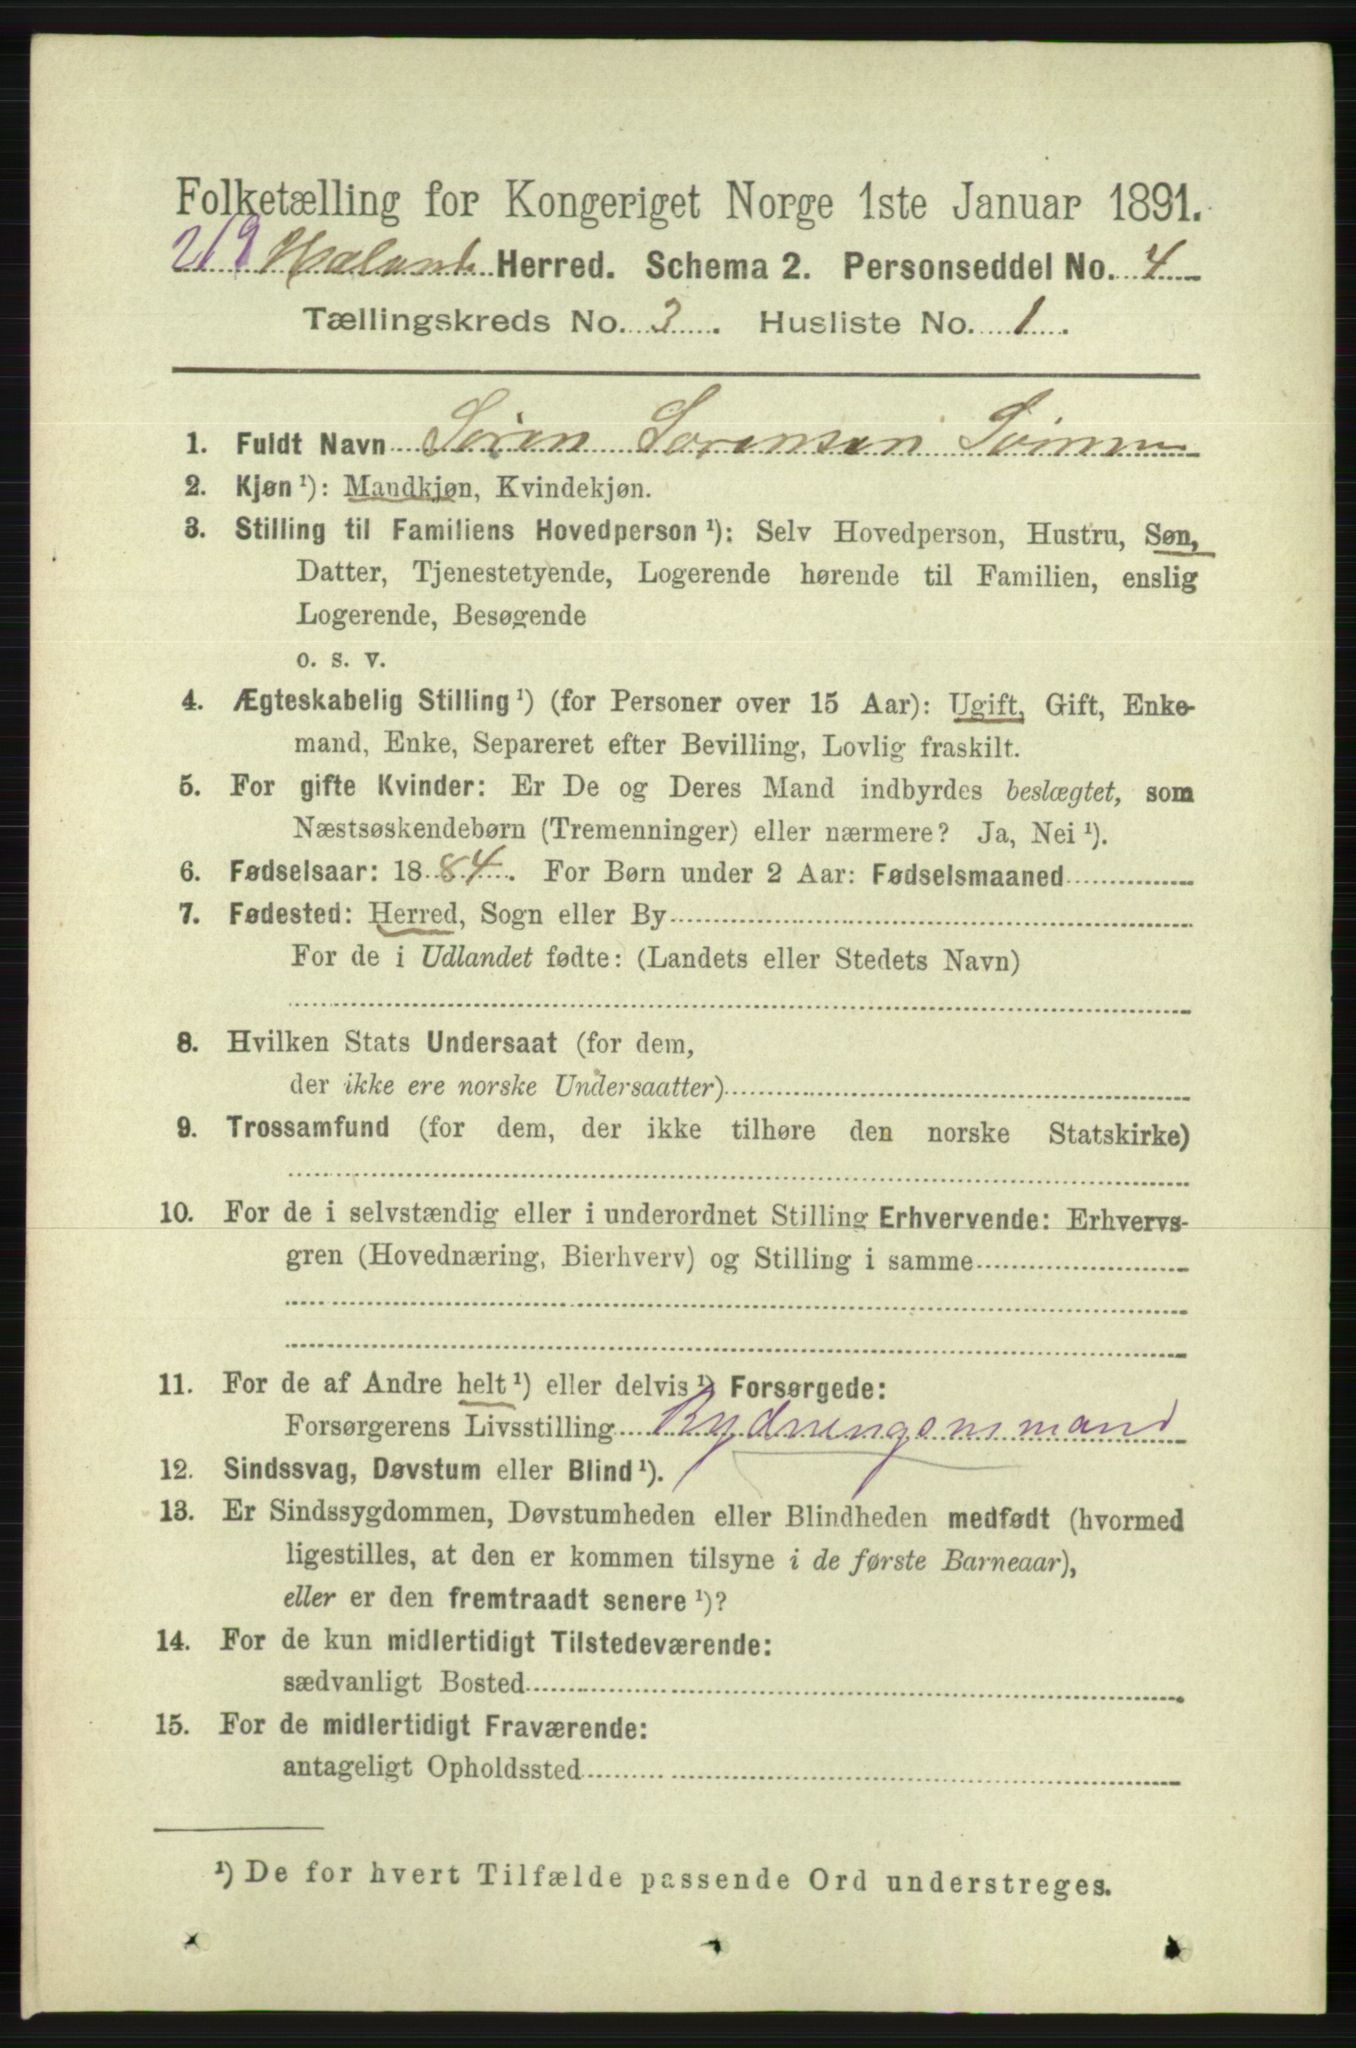 Folketælling for Kongeriget Norge 1ste Januar 1891.
Herred. Schema 2. Personseddel No. 4
Tællingskreds No. 3. Husliste No. 1.
1. Fuldt Navn Søren Sørensen
2. Kjøn ¹): Mandkjøn, Kvindekjøn.
3. Stilling til Familiens Hovedperson ¹): Selv Hovedperson, Hustru, Søn,
Datter, Tjenestetyende, Logerende hørende til Familien, enslig
Logerende, Besøgende
o. s. v.
4. Ægteskabelig Stilling ¹) (for Personer over 15 Aar): Ugift, Gift, Enke-
mand, Enke, Separeret efter Bevilling, Lovlig fraskilt.
5. For gifte Kvinder: Er De og Deres Mand indbyrdes beslægtet, som
Næstsøskendebørn (Tremenninger) eller nærmere? Ja, Nei ¹).
6. Fødselsaar: 1884. For Børn under 2 Aar: Fødselsmaaned
7. Fødested: Herred, Sogn eller By
For de i Udlandet fødte: (Landets eller Stedets Navn)
8. Hvilken Stats Undersaat (for dem,
der ikke ere norske Undersaatter)
9. Trossamfund (for dem, der ikke tilhøre den norske Statskirke)
10. For de i selvstændig eller i underordnet Stilling Erhvervende: Erhvervs-
gren (Hovednæring, Bierhverv) og Stilling i samme
11. For de af Andre helt ¹) eller delvis ¹) Forsørgede:
Forsørgerens Livsstilling Rydningsmmand
12. Sindssvag, Døvstum eller Blind ¹).
13. Er Sindssygdommen, Døvstumheden eller Blindheden medfødt (hvormed
ligestilles, at den er kommen tilsyne i de første Barneaar),
eller er den fremtraadt senere ¹)?
14. For de kun midlertidigt Tilstedeværende:
sædvanligt Bosted
15. For de midlertidigt Fraværende:
antageligt Opholdssted
¹) De for hvert Tilfælde passende Ord understreges.